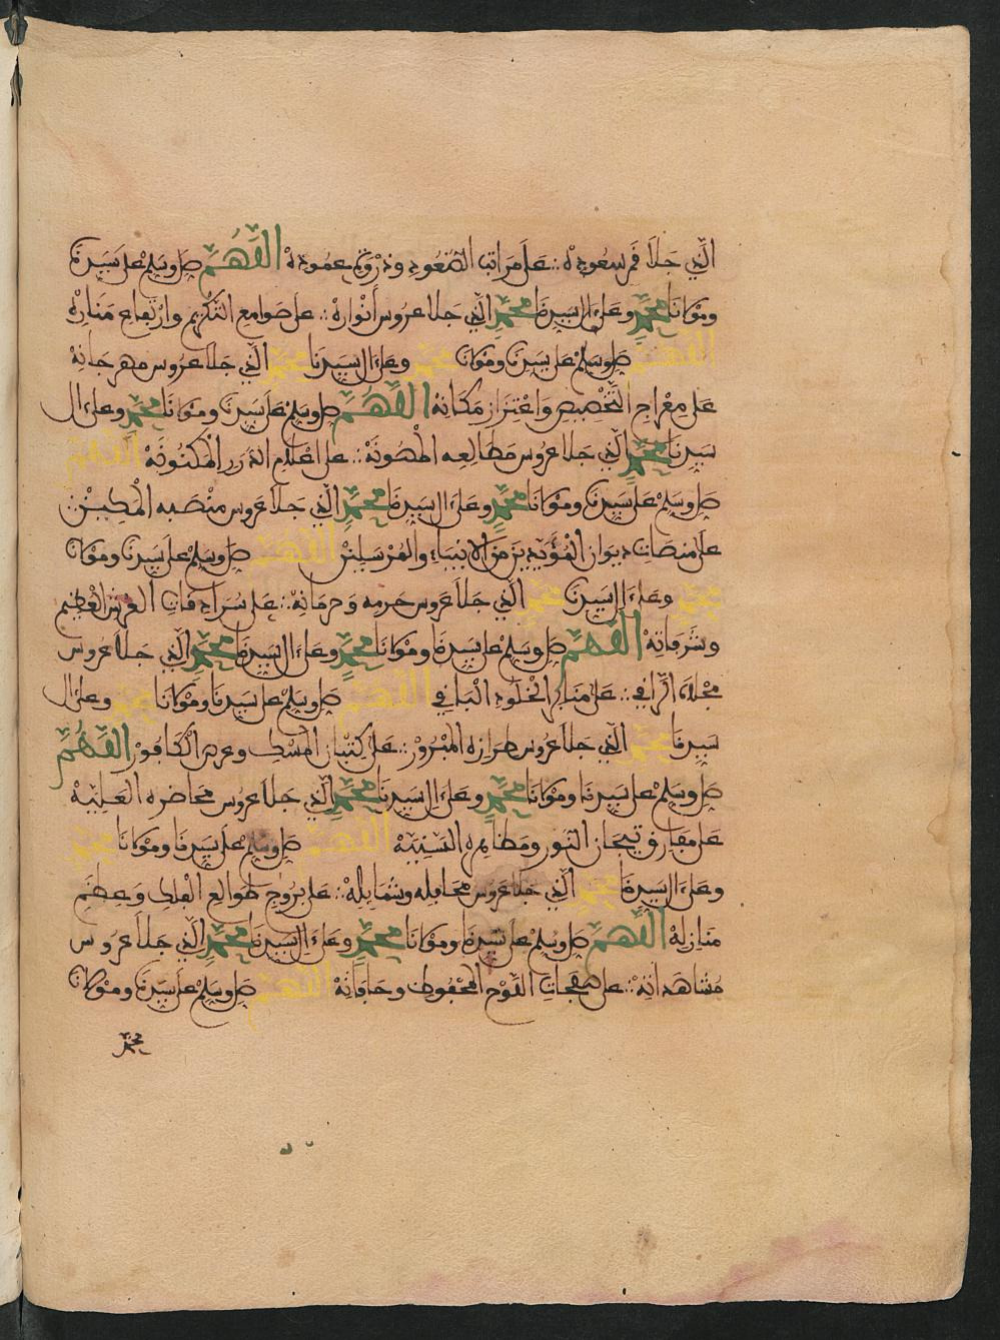 الذي جلا قمر سعوده ∴ على مراتب الصعود وذروة عموده اللهم صل وسلم على سيدنا
ومولانا محمد وعلى ءال سيدنا محمد الذي جلا عروس أنواره ∴ على صوامع التكريم وارتفاع مناره
اللهم صل وسلم على سيدنا ومولانا محمد وعلى ءال سيدنا محمد الذي جلا عروس مهرجانه
على معراج التخصيص واعتزاز مكانه اللهم صل وسلم على سيدنا ومولانا محمد وعلى ءال
سيدنا محمد الذي جلا عروس مطالعه المصونة ∴ على اعلام الدرر المكنونة اللهم
صل وسلم على سيدنا ومولانا محمد وعلى ءال سيدنا محمد الذي جلا عروس منصبه المكين
على منصات ديوان المؤيدين من الانبياء والمرسلين اللهم صل وسلم على سيدنا ومولانا
محمد وعلى ءال سيدنا محمد الذي جلا عروس حرمه وحرماته ∴ على سرادقات العرش العظيم
وشرفاته اللهم صل وسلم على سيدنا ومولانا محمد وعلى ءال سيدنا محمد الذي جلا عروس
مجلاه الراقي ∴ على منابر الخلود الباقي اللهم صل وسلم على سيدنا ومولانا محمد وعلى ءال
سيدنا محمد الذي جلا عروس طرازه المبرور ∴ على كثبان المسك وعرف الكافور اللهم
صل وسلم على سيدنا ومولانا محمد وعلى ءال سيدنا محمد الذي جلا عروس محاضره العلية
على مفارق تيجان النور ومظاهره السنية اللهم صل وسلم على سيدنا ومولانا محمد
وعلى ءال سيدنا محمد الذي جلا عروس محافله وشمايله ∴ على بروج طوالع الفلك وعظيم
منازله اللهم صل وسلم على سيدنا ومولانا محمد وعلى ءال سيدنا محمد الذي جلا عروس
مشاهداته ∴ على صفحات اللوح المحفوظ وحافاته اللهم صل وسلم على سيدنا ومولانا
محمد